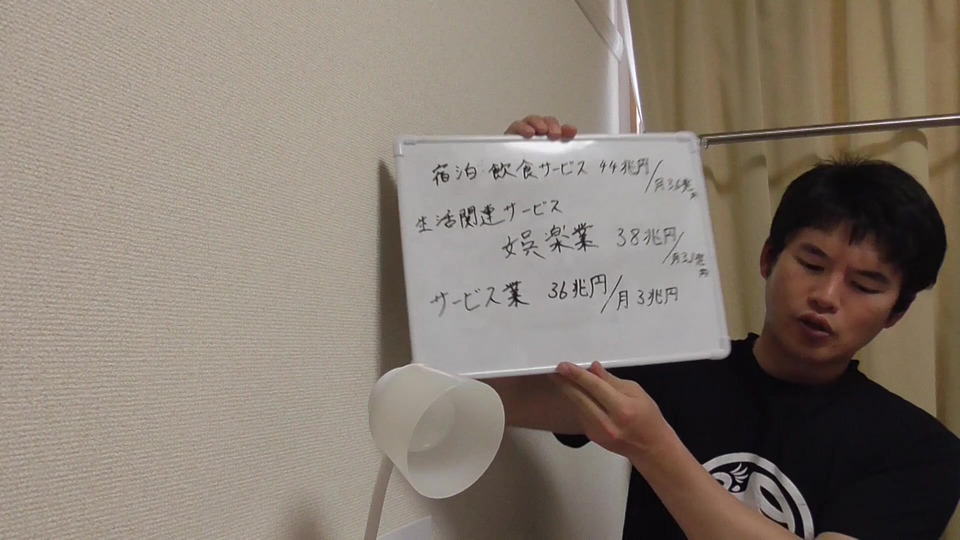 宿泊・飲食サービス 44兆円/月3.6兆円
生活関連サービス
娯楽業 38兆円/月3.2兆円
サービス業 36兆円/月3兆円